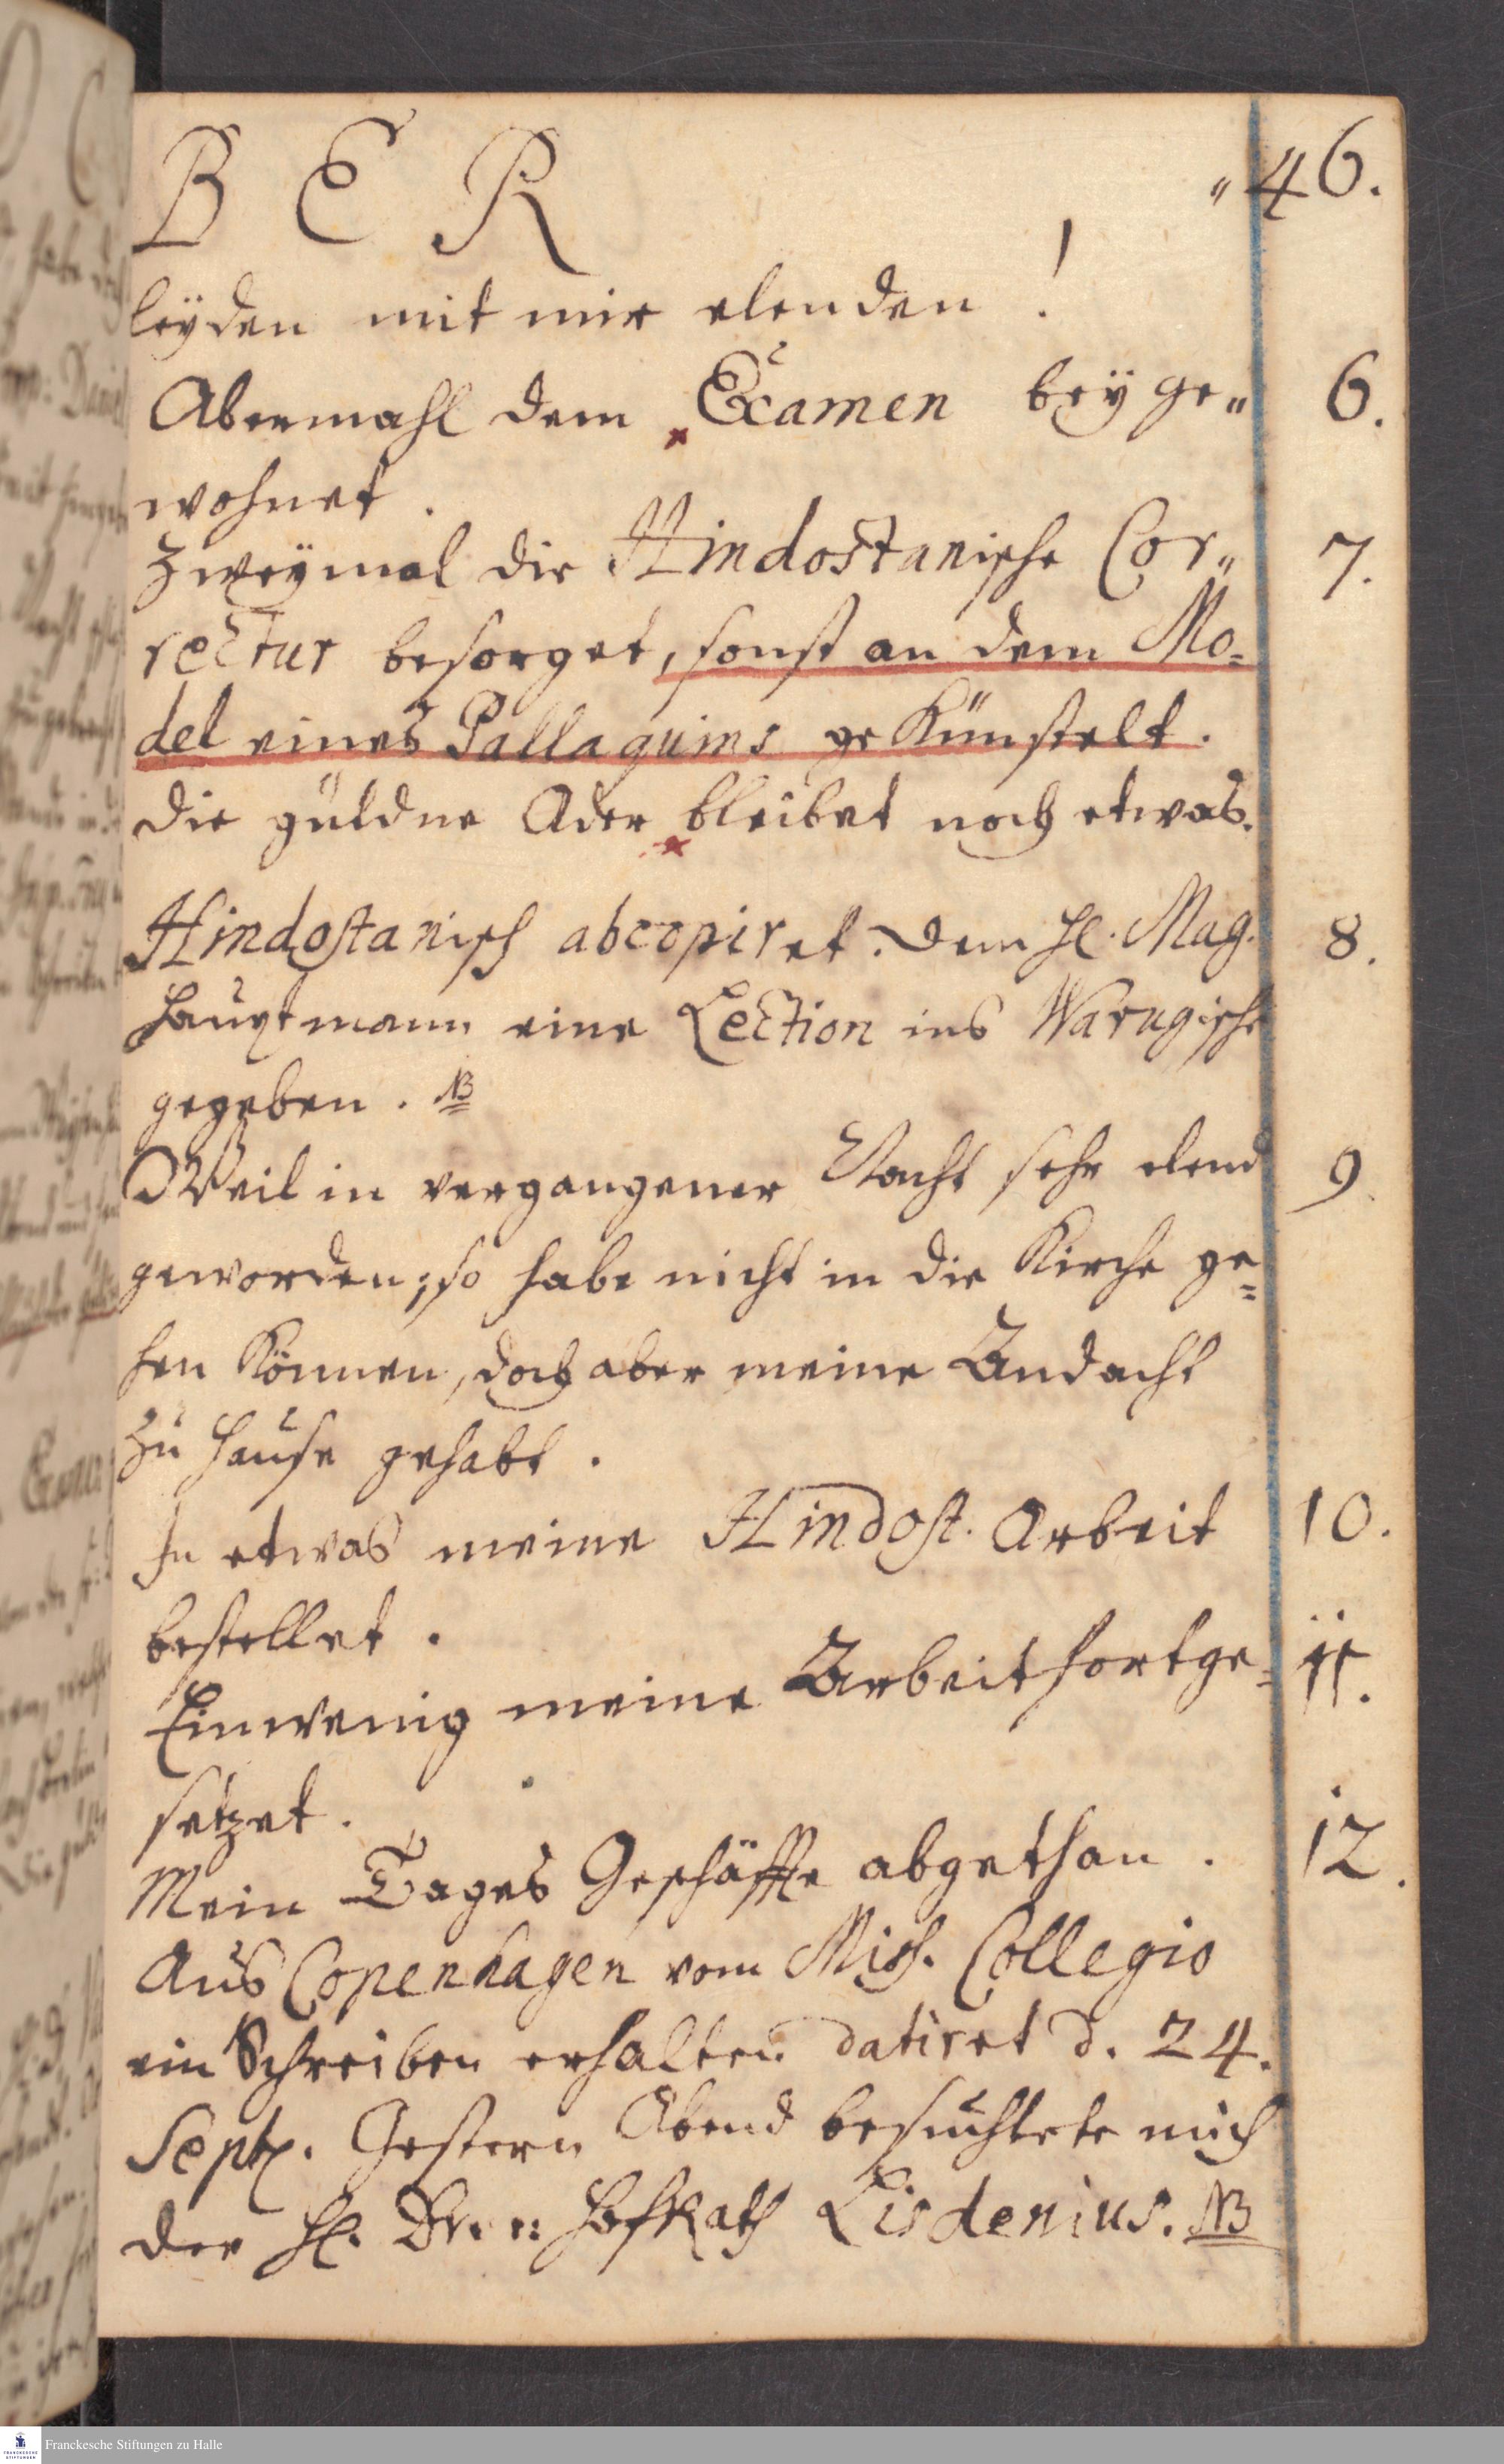 B E R "46.
leyden mit mir elenden!
Abermahl dem Examen bey ge" 6.
wohnet.
Zweymal die Hindostanische Cor" 7.
rectur besorget, sonst an dem Mo=
del eines Pallaquins gekünstelt.
die güldne Ader bleibet noch etwas.
Hindostanisch abcopiret. dem H. Mag. 8.
Hauptmann eine Lection ins Warugische
gegeben. NB
Weil in vergangener Nacht sehr elend 9.
geworden; so habe nicht in die Kirche ge=
hen können, doch aber meine Andacht
zu Hause gehabt.
In etwas meine Hindost. Arbeit 10.
bestellet.
Ein wenig meine Arbeit fortge= 11.
setzet.
Mein Tages Geschäffte abgethan. 12.
Aus Copenhagen vom Miss. Collegio
ein Schreiben erhalten datiret d. 24.
Sept. Gestern Abend besuchtete mich
der H. HofRath Lisdenius. NB
Franckesche Stiftungen zu Halle